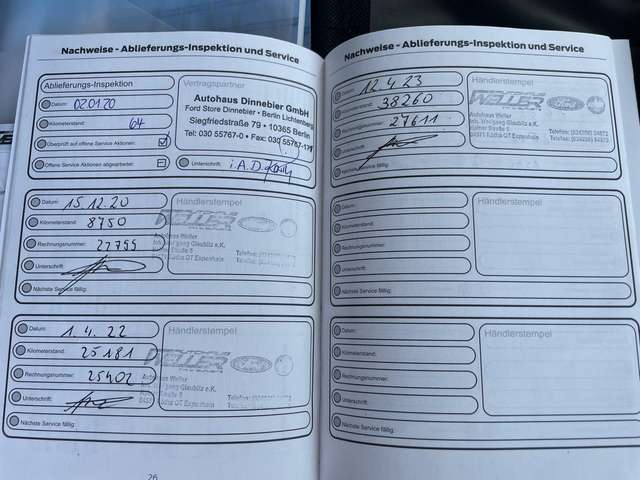 Nachweise - Ablieferungs-Inspektion und Service
Ablieferungs-Inspektion
Datum: 02.01.20
Kilometerstand: 64
Überprüft auf offene Service Aktionen:
Offene Service Aktionen abgearbeitet:
Vertragspartner
Autohaus Dinnebier GmbH
Ford Store Dinnebier • Berlin Lichtenberg
Siegfriedstraße 79 • 10365 Berlin
Tel: 030 55767-0 • Fax: 030 55767-171
Unterschrift: i.A.D.
Datum: 15.12.20
Kilometerstand: 8750
Rechnungsnummer: 22755
Unterschrift:
Nächste Service fällig:
Händlerstempel
Autohaus Weller
Inh. Wolfgang Glaubitz e.K.
Datum: 1.4.22
Kilometerstand: 25181
Rechnungsnummer: 25402
Unterschrift:
Nächste Service fällig:
Händlerstempel
WELLER
Autohaus Weller
Inh. Wolfgang Glaubitz e.K.
26
Nachweise - Ablieferungs-Inspektion und Service
12.4.23
38260
27611
Nächste Service fällig:
Händlerstempel
WELLER
Ford
Autohaus Weller
Inh. Wolfgang Glaubitz e.K.
Datum:
Kilometerstand:
Rechnungsnummer:
Unterschrift:
Nächste Service fällig:
Händlerstempel
Datum:
Kilometerstand:
Rechnungsnummer:
Unterschrift:
Nächste Service fällig:
Händlerstempel